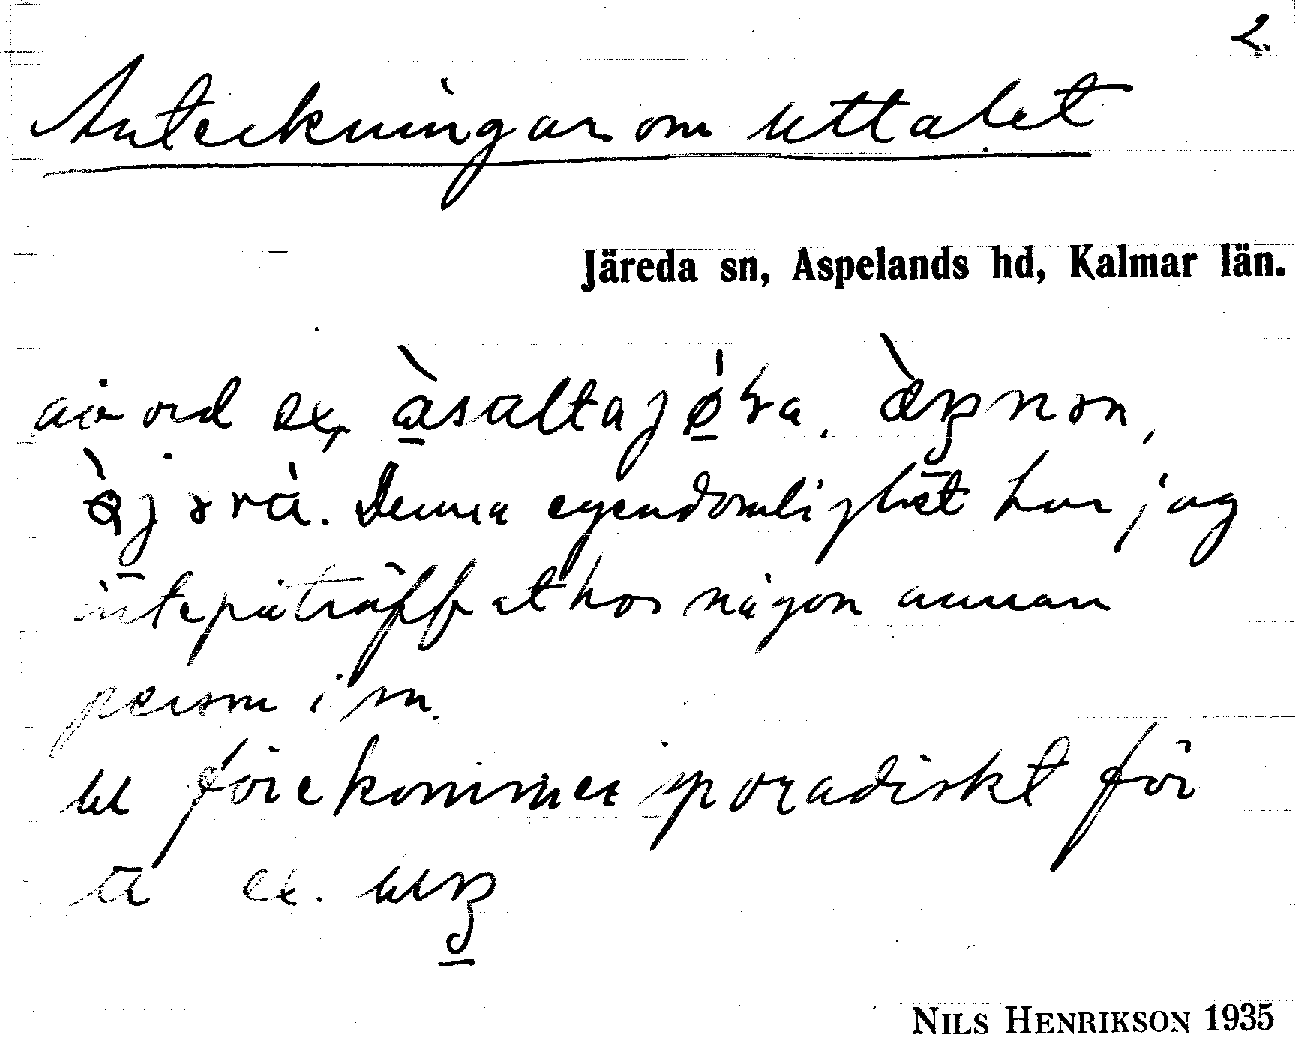 2.
Anteckningar om uttalet
Järeda sn, Aspelands hd, Kalmar län.
av ord ex,
Denna egendomlighet har jag
inte påträffat hos någon annan
person i sn.
förekommer sporadiskt för
ex.
NILS HENRIKSON 1935